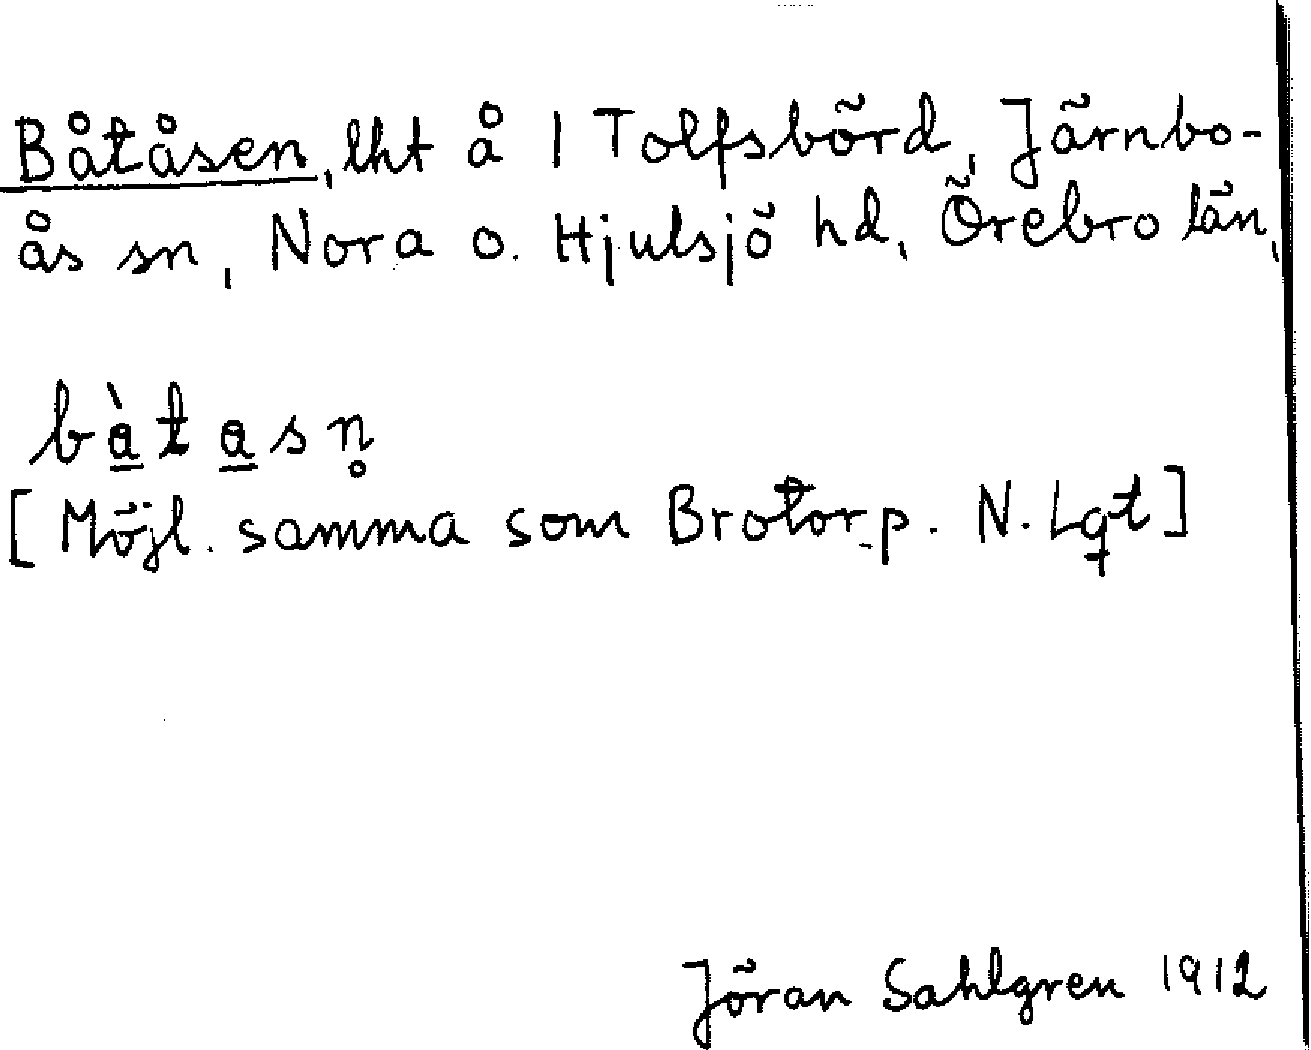 Båtåsen, lht å 1 Tolfsbörd, Järnbo-
ås sn, Nora o. Hjulsjö hd, Örebro län,
bàtasn̥
[Möjl. samma som Brotorp. N. Lqt]
Jöran Sahlgren 1912